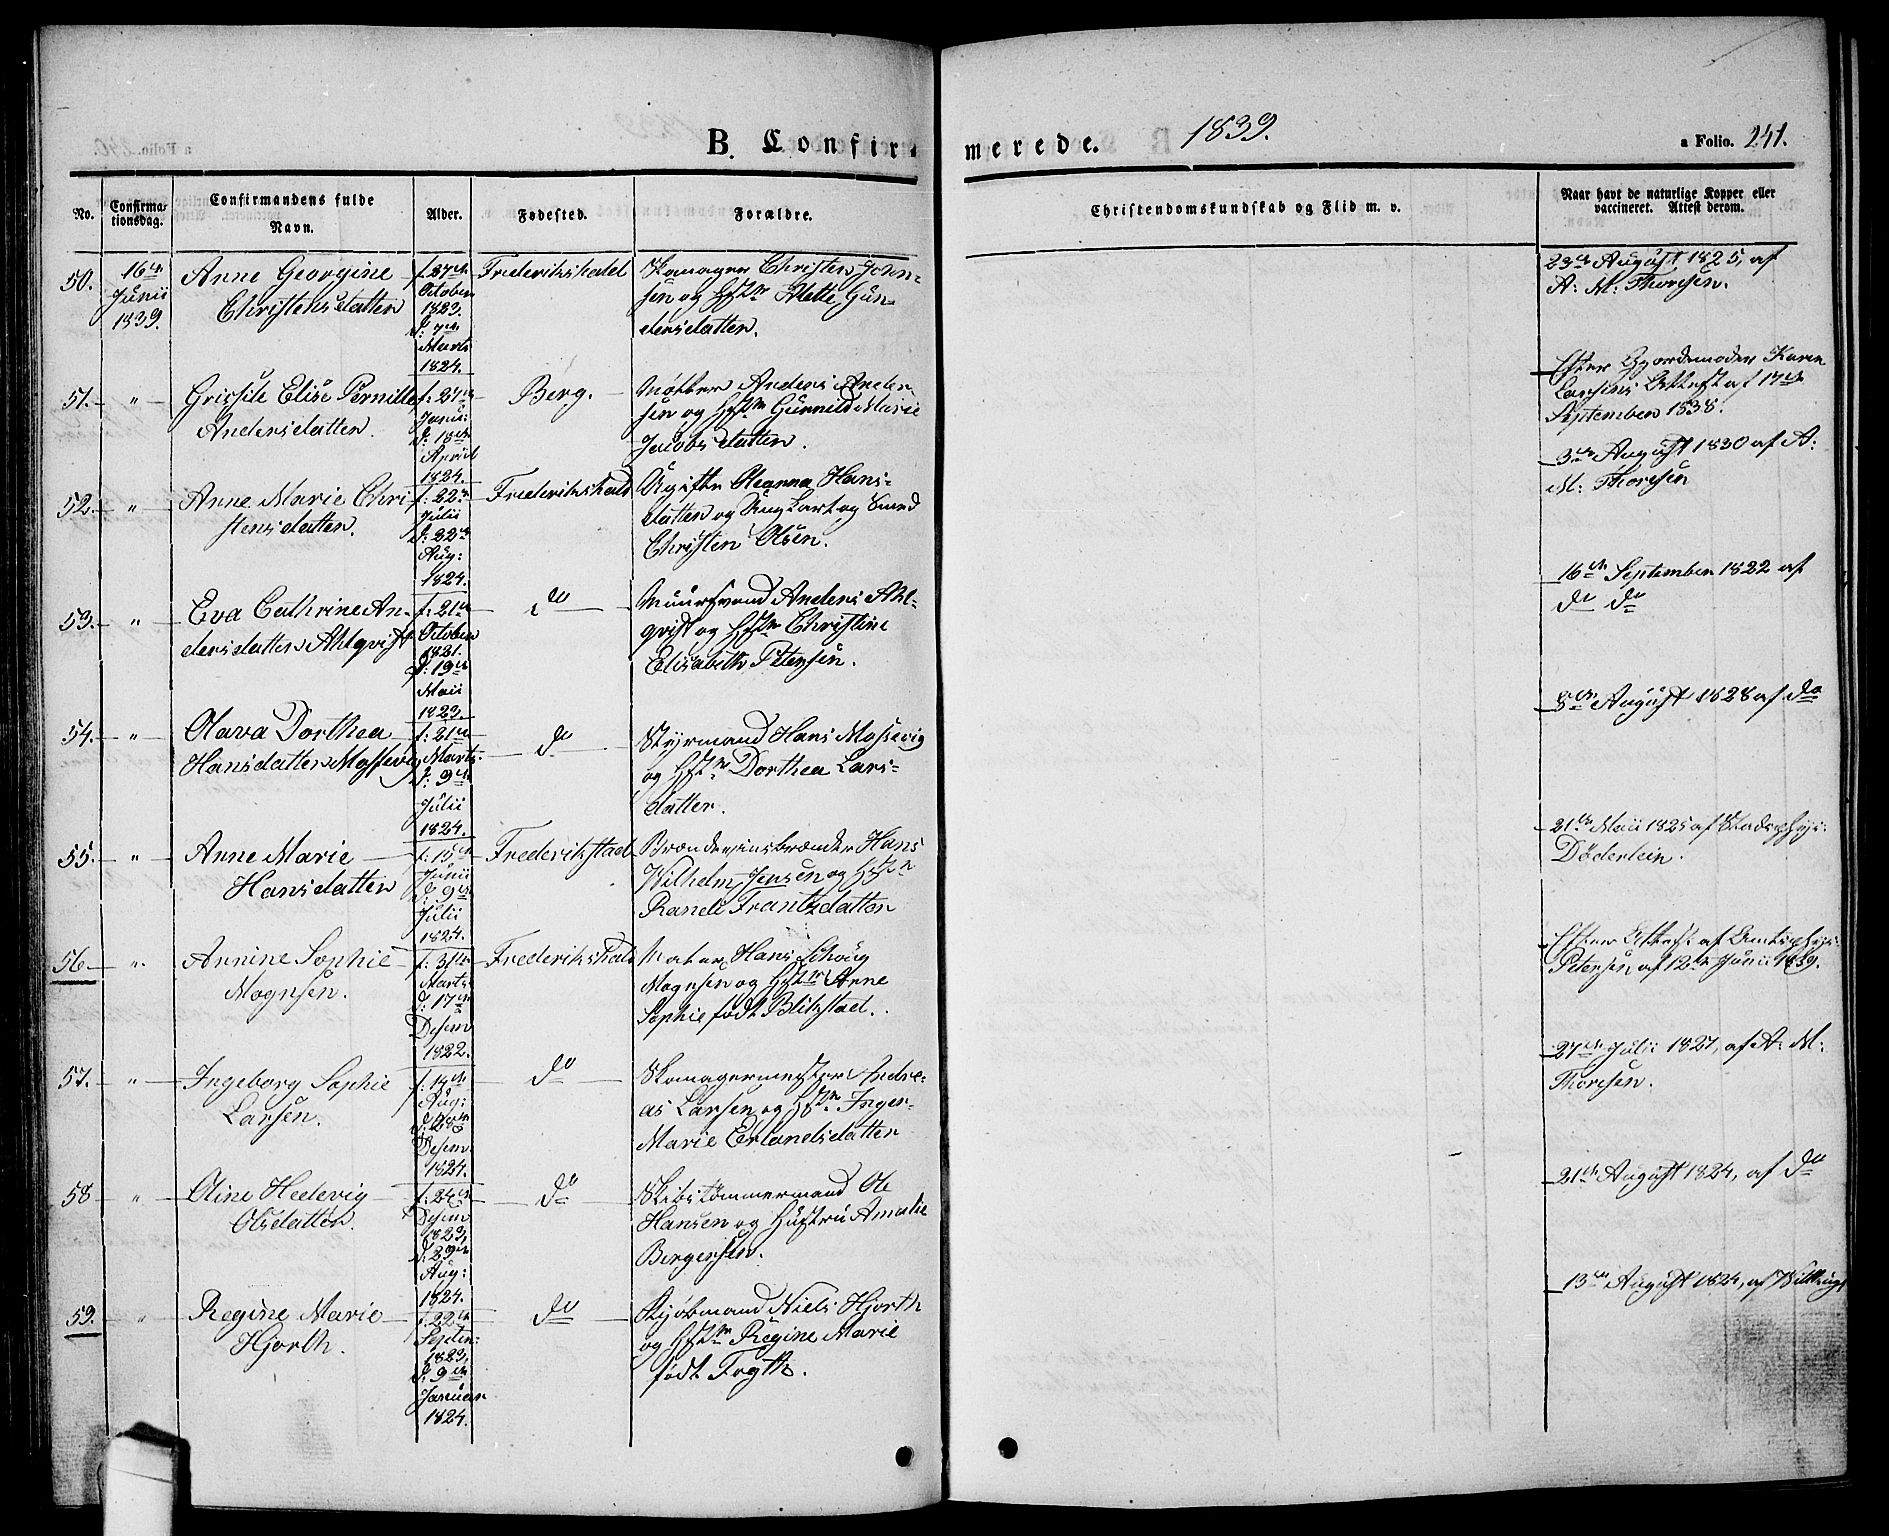 B. Confirmerede. 1839. a Folio. 241.
No.
Confirmationsdag.
Confirmandens fulde Navn.
Alder.
Fødested.
Forældre.
Christendomskundskab og Flid m. v.
Naar havt de naturlige Kopper eller
vaccineret. Attest derom.
50.
16de
Junii
1839.
Anne Georgine
Christensdatter
f. 27de
October
1823.
d: 7de
Marts
1824.
Frederikshald
Skomager Christen John-
sen og Hstr Mette Gun-
dersdatter.
23de August 1825, af
A: M: Thoresen.
51.
"
Grissile Elise Pernille
Andersdatter.
f. 27de
Janu:
d: 18de
April
1824.
Berg.
Anders Ander-
sen og Hstr Gunnild Marie
Jacobsdatter.
Efter Gjordemoder Karen
Larsens Attest af 17de
September 1838.
52.
"
Anne Marie Chri-
stensdatter.
f: 22de
Julii
d: 22de
Aug:
1824.
Frederikshald
Ugifte Oleanna Hans-
datter og Ungkarl og Smed
Christen Olsen.
3de August 1830 af A:
M: Thoresen
53.
"
Eva Cathrine An-
dersdatter Ahlqvist
f: 21de
October
1821.
d: 19de
Maii
1823.
do
Muursvend Anders Ahl-
qvist og Hstr Christine
Elisabeth Petersen.
16de September 1822 af
do do
54.
"
Olava Dorthea
Hansdatter Mossevig
f: 21de
Marts
d: 9de
Julii
1824.
do
Styrmand Hans Mossevig
og Hstr Dorthea Lars-
datter.
8de August 1828 af do
55.
"
Anne Marie
Hansdatter
f: 15de
Junii
d: 9de
Julii
1824.
Frederikstad
Brændeviinsbrænder Hans
Wilhelm Jensen og Hstr
Randi Frantzdatter
21de Maii 1825 af Stadsphys:
Döderlein.
56
"
Annine Sophie
Mognsen.
f. 31te
Marts
d: 17de
Desem
1822.
Frederikshald
Maler Hans Schoug
Mognsen og Hstr Anne
Sophie født Blikstad.
Efter Attest af Amtsphys:
Petersen af 12te Junii 1839.
57.
"
Ingeborg Sophie
Larsen.
f: 14de
Aug:
Desem
1824.
do
Skomagermester Andre-
as Larsen og Hstr Inger
Marie Erlandsdatter
27de Julii 1827, af A: M:
Thoresen.
58
"
Oline Hedevig
Olsdatter.
f: 24de
Desem
1823,
d: 29de
Aug:
1824.
do
Skibstømmermand Ole
Hansen og Hustru Amalie
Bergersen.
21de August 1824, af do
59.
"
Regine Marie
Hjorth.
f: 22de
Septem:
1823,
d: 9de
Januar
1824.
do
Kjøbmand Niels Hjorth
og Hstr Regine Marie
født Fogth.
13de August 1824, af